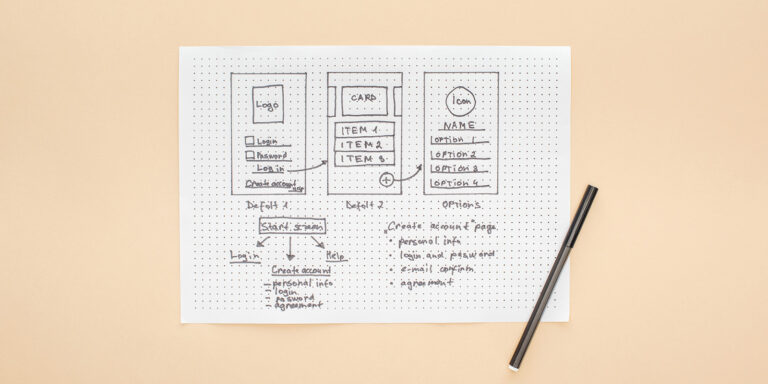 Logo
Login
Password
Log in
Create account
Defolt 1
CARD
ITEM 1
ITEM 2
ITEM 3
+
Defolt 2
Icon
NAME
OPTION 1
OPTION 2
OPTION 3
OPTION 4
OPTIONS
Start screen
Login
Help
Create account
- personal info
- login
- password
- agreement
"Create account" page
• personal info
• login and password
• e-mail confirm
• agreement